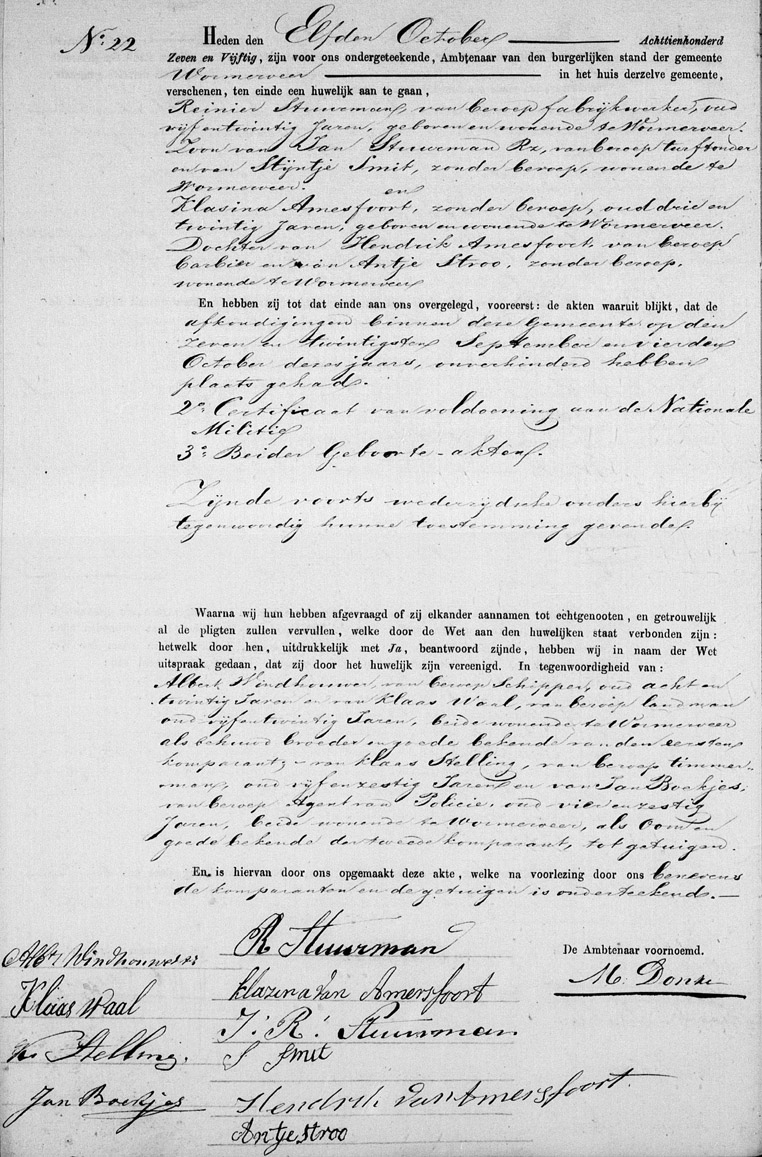 No. 22
Heden den Elfden October Achttienhonderd
Zeven en Vijftig, zijn voor ons ondergeteekende, Ambtenaar van den burgerlijken stand der gemeente
Wormerveer in het huis derzelve gemeente,
verschenen, ten einde een huwelijk aan te gaan,
Reinier Stuurman, van beroep fabrijkwerker, oud
vijf en twintig Jaren, geboren en wonende te Wormerveer.
Zoon van Jan Stuurman Rz, van beroep turftonder
en van Stijntje Smit, zonder beroep, wonende te
Wormerveer. en
Klasina Amesfoort, zonder beroep, oud drie en
twintig Jaren, geboren en wonende te Wormerveer.
Dochter van Hendrik Amesfoort, van beroep
barbier en van Antje Stroo, zonder beroep,
wonende te Wormerveer
En hebben zij tot dat einde aan ons overgelegd, vooreerst: de akten waaruit blijkt, dat de
afkondigingen binnen deze Gemeente op den
zeven en twintigsten September en vierden
October dezes jaars, onverhinderd hebben
plaats gehad.
2o. Certificaat van voldoening aan de Nationale
Militie
3o. Beider Geboorte-akten.
Zijnde voorts wederzijdsche ouders hierbij
tegenwoordig hunne toestemming gevende.
Waarna wij hun hebben afgevraagd of zij elkander aannamen tot echtgenooten, en getrouwelijk
al de pligten zullen vervullen, welke door de Wet aan den huwelijken staat verbonden zijn:
hetwelk door hen, uitdrukkelijk met Ja, beantwoord zijnde, hebben wij in naam der Wet
uitspraak gedaan, dat zij door het huwelijk zijn vereenigd. In tegenwoordigheid van:
Albert Windhouwer, van beroep Schipper, oud acht en
twintig Jaren en van Klaas Waal, van beroep landman
oud vijf en twintig Jaren, beide wonende te Wormerveer
als behuwd broeder en goede bekende van den eersten
komparant, – van Klaas Stelling, van beroep timmer-
man, oud vijf en zestig Jaren en van Jan Boekjes,
van beroep Agent van Policie, oud vier en zestig
Jaren, beide wonende te Wormerveer, als Oom en
goede bekende der tweede komparant, tot getuigen.
En is hiervan door ons opgemaakt deze akte, welke na voorlezing door ons benevens
de komparanten en de getuigen is onderteekend.
Albt Windhouwer
R Stuurman
De Ambtenaar voornoemd.
M. Donker
Klaas Waal
Klazina Van Amersfoort
J: R: Stuurman
Ks Stelling.
S Smit
Jan Boekjes
Hendrik Van Amersfoort
Antje stroo